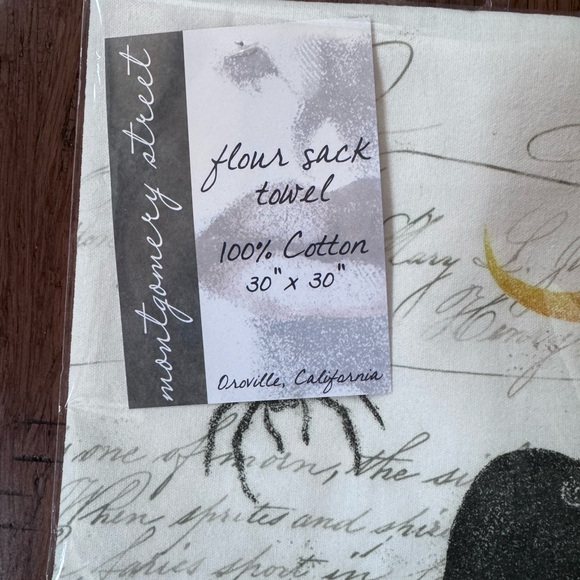 montgomery street
flour sack
towel
100% Cotton
30" x 30"
Oroville, California
Mary L. Ja
one of morn, the si
When sprites and
faries sport in